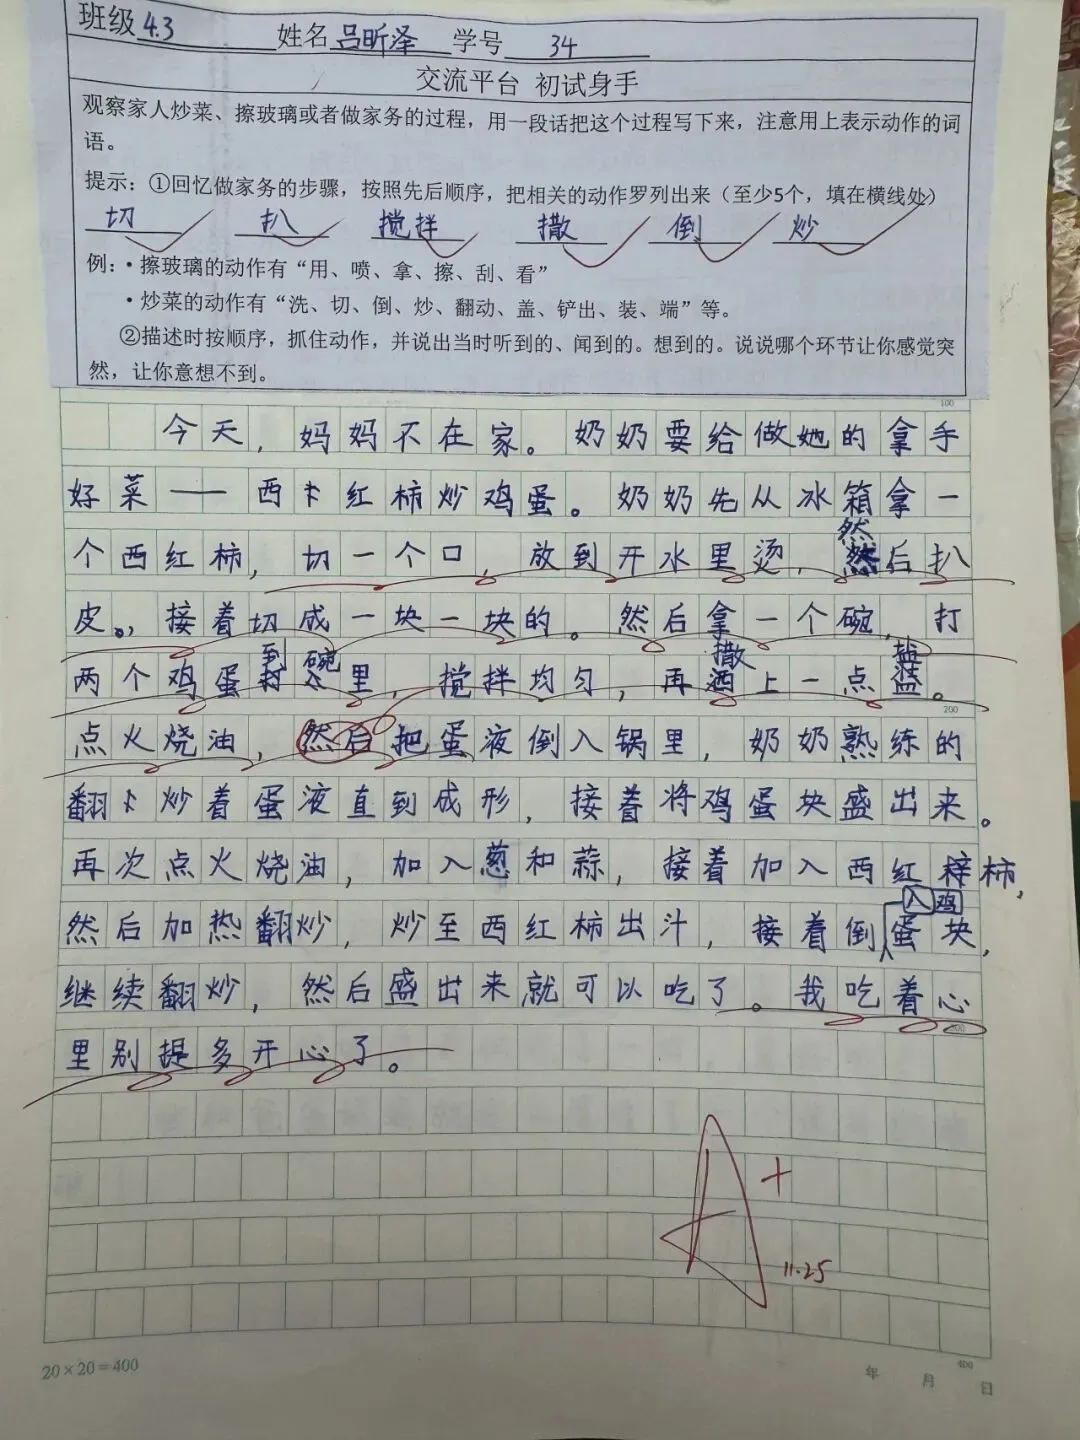 班级 4.3 姓名 吕昕泽 学号 34
交流平台 初试身手
观察家人炒菜、擦玻璃或者做家务的过程，用一段话把这个过程写下来，注意用上表示动作的词
语。
提示：①回忆做家务的步骤，按照先后顺序，把相关的动作罗列出来（至少5个，填在横线处）
切 扒 搅拌 撒 倒 炒
例：·擦玻璃的动作有“用、喷、拿、擦、刮、看”
·炒菜的动作有“洗、切、倒、炒、翻动、盖、铲出、装、端”等。
②描述时按顺序，抓住动作，并说出当时听到的、闻到的。想到的。说说哪个环节让你感觉突
然，让你意想不到。
100
今天，妈妈不在家。奶奶要给做她的拿手
好菜——西红柿炒鸡蛋。奶奶先从冰箱拿一
个西红柿，切一个口，放到开水里烫，然后扒
皮。，接着切成一块一块的。然后拿一个碗，打
两个鸡蛋到碗里，搅拌均匀，再撒上一点盐。
200
点火烧油，然后把蛋液倒入锅里，奶奶熟练的
翻炒着蛋液直到成形，接着将鸡蛋块盛出来。
再次点火烧油，加入葱和蒜，接着加入西红柿，
然后加热翻炒，炒至西红柿出汁，接着倒入鸡蛋块，
继续翻炒，然后盛出来就可以吃了。我吃着心
300
里别提多开心了。
A+
11.25
400
20×20=400 年 月 日